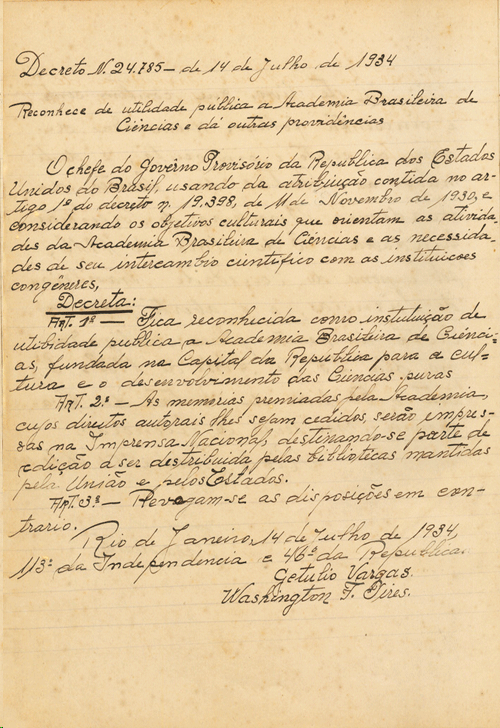 Decreto N. 24.785 — de 14 de Julho de 1934
Reconhece de utilidade publica a Academia Brasileira de
Ciências e dá outras providências
O chefe do Govêrno Provisório da Republica dos Estados
Unidos do Brasil, usando da atribuição contida no ar-
tigo 1º do decreto n. 19.398, de 11 de Novembro de 1930, e
considerando os objetivos culturais que orientam as ativida-
des da Academia Brasileira de Ciências e as necessida-
des de seu intercambio cientifico com as instituicões
congêneres,
Decreta:
Art. 1º — Fica reconhecida como instituição de
utilidade publica a Academia Brasileira de Ciênci-
as, fundada na Capital da Republica para a cul-
tura e o desenvolvimento das Ciências puras
Art. 2º — As memórias premiadas pela Academia,
cujos direitos autorais lhes sejam cedidos, serão impres-
sas na Imprensa Nacional, destinando-se parte da
edição a ser distribuida pelas bibliotecas mantidas
pela União e pelos Estados.
Art. 3º — Revogam-se as disposições em con-
trario.
Rio de Janeiro, 14 de Julho de 1934,
113º da Independencia e 46º da Republica.
Getulio Vargas.
Washington F. Pires.